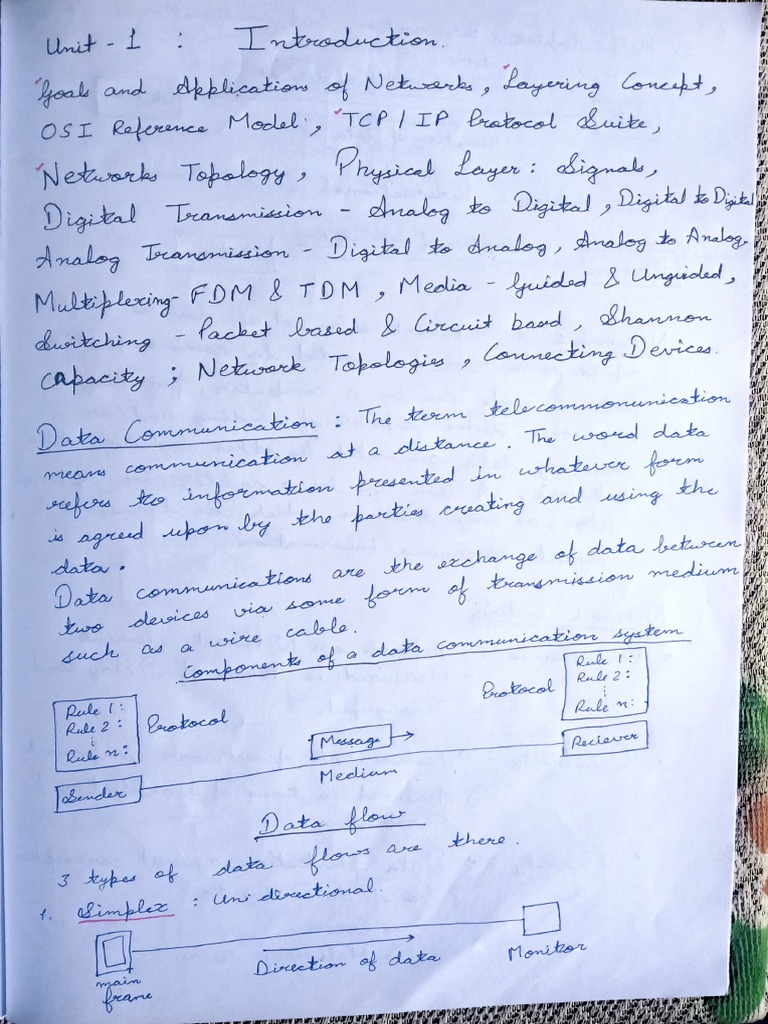 Unit - 1 : Introduction.
Goals and Applications of Networks, Layering Concept,
OSI Reference Model, TCP / IP Protocol Suite,
Networks Topology, Physical Layer: Signals,
Digital Transmission - Analog to Digital, Digital to Digital
Analog Transmission - Digital to Analog, Analog to Analog.
Multiplexing - FDM & TDM, Media - Guided & Unguided,
Switching - Packet based & Circuit based, Shannon
Capacity ; Network Topologies, Connecting Devices.
Data Communication : The term telecommonunication
means communication at a distance. The word data
refers to information presented in whatever form
is agreed upon by the parties creating and using the
data.
Data communications are the exchange of data between
two devices via some form of transmission medium
such as a wire cable.
Components of a data communication system
Rule 1:
Rule 2:
Rule n:
Protocol
Protocol
Rule 1:
Rule 2:
Rule n:
Sender
Message
Medium
Reciever
Data flow
3 types of data flows are there.
1. Simplex : Uni directional.
main
frame
Direction of data
Monitor